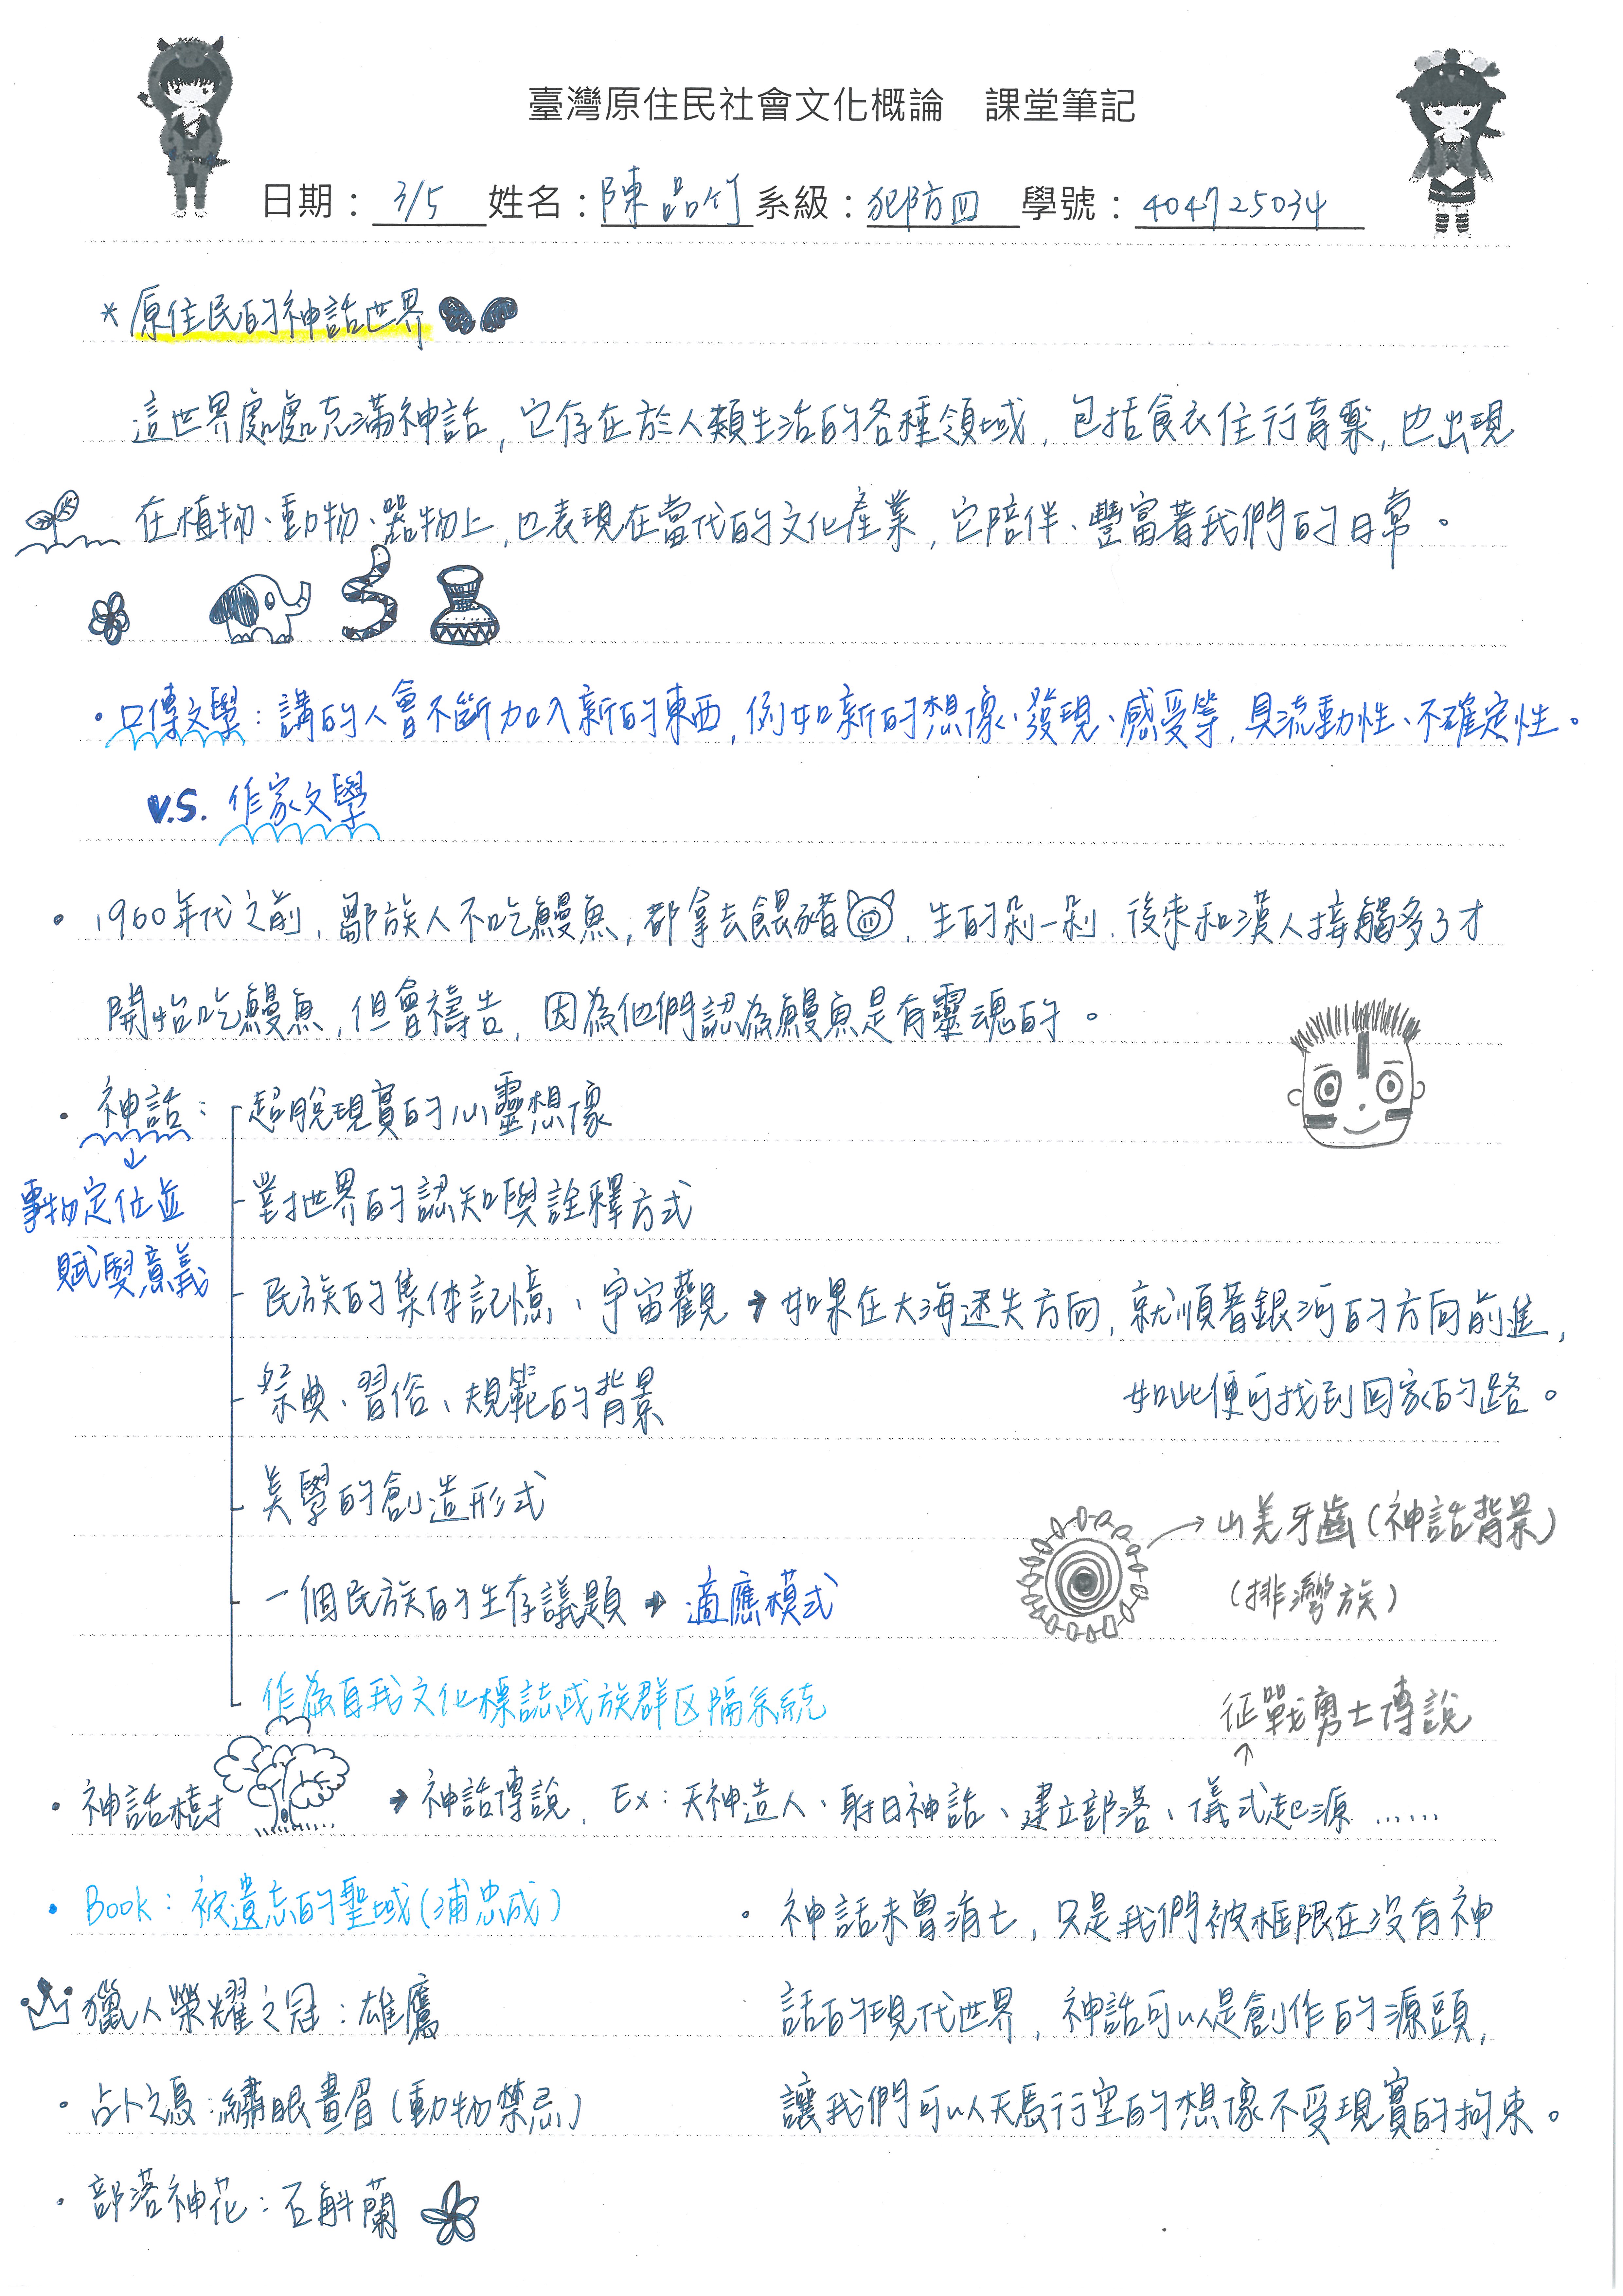 臺灣原住民社會文化概論 課堂筆記
日期：3/5 姓名：陳品竹 系級：犯防四 學號：404725034
*原住民的神話世界
這世界處處充滿神話，它存在於人類生活的各種領域，包括食衣住行育樂，也出現
在植物、動物、器物上，也表現在當代的文化產業，它陪伴、豐富著我們的日常。
•口傳文學：講的人會不斷加入新的東西，例如新的想像、發現、感受等，具流動性、不確定性。
v.s. 作家文學
•1960年代之前，鄒族人不吃鰻魚，都拿去餵豬，生的剁一剁，後來和漢人接觸多了才
開始吃鰻魚，但會禱告，因為他們認為鰻魚是有靈魂的。
•神話：超脫現實的心靈想像
↓
事物定位並
賦與意義
對世界的認知與詮釋方式
民族的集体記憶、宇宙觀→如果在大海迷失方向，就順著銀河的方向前進，
如此便可找到回家的路。
祭典、習俗、規範的背景
美學的創造形式
→山羌牙齒(神話背景)
(排灣族)
一個民族的生存議題→適應模式
作為自我文化標誌或族群区隔系統
征戰勇士傳說
↑
•神話樹→神話傳說，Ex：天神造人、射日神話、建立部落、儀式起源……
•Book：被遺忘的聖域(浦忠成)
獵人榮耀之冠：雄鷹
•占卜之鳥：繡眼畫眉(動物禁忌)
•部落神花：石斛蘭
•神話未曾消亡，只是我們被框限在沒有神
話的現代世界，神話可以是創作的源頭，
讓我們可以天馬行空的想像不受現實的拘束。